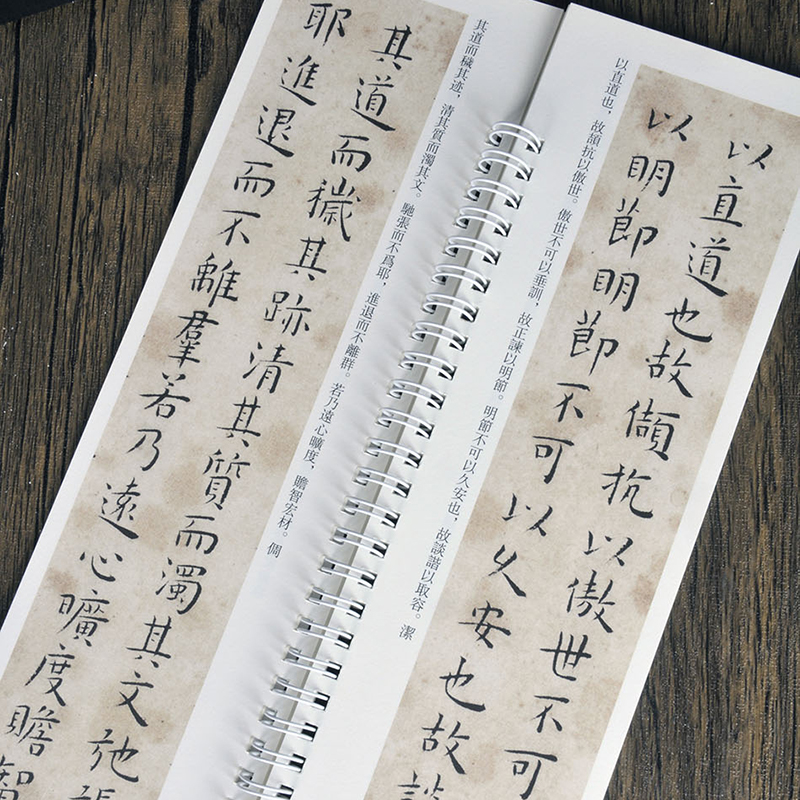 以直道也故頡抗以傲世不可
以明節明節不可以久安也故談
以直道也,故頡抗以傲世。傲世不可以垂訓,故正諫以明節。明節不可以久安也,故談諧以取容。潔
其道而穢其跡清其質而濁其文弛張
耶進退而不離羣若乃遠心曠度贍智
其道而穢其迹,清其質而濁其文。馳張而不爲耶,進退而不離群。若乃遠心曠度,贍智宏材。倜